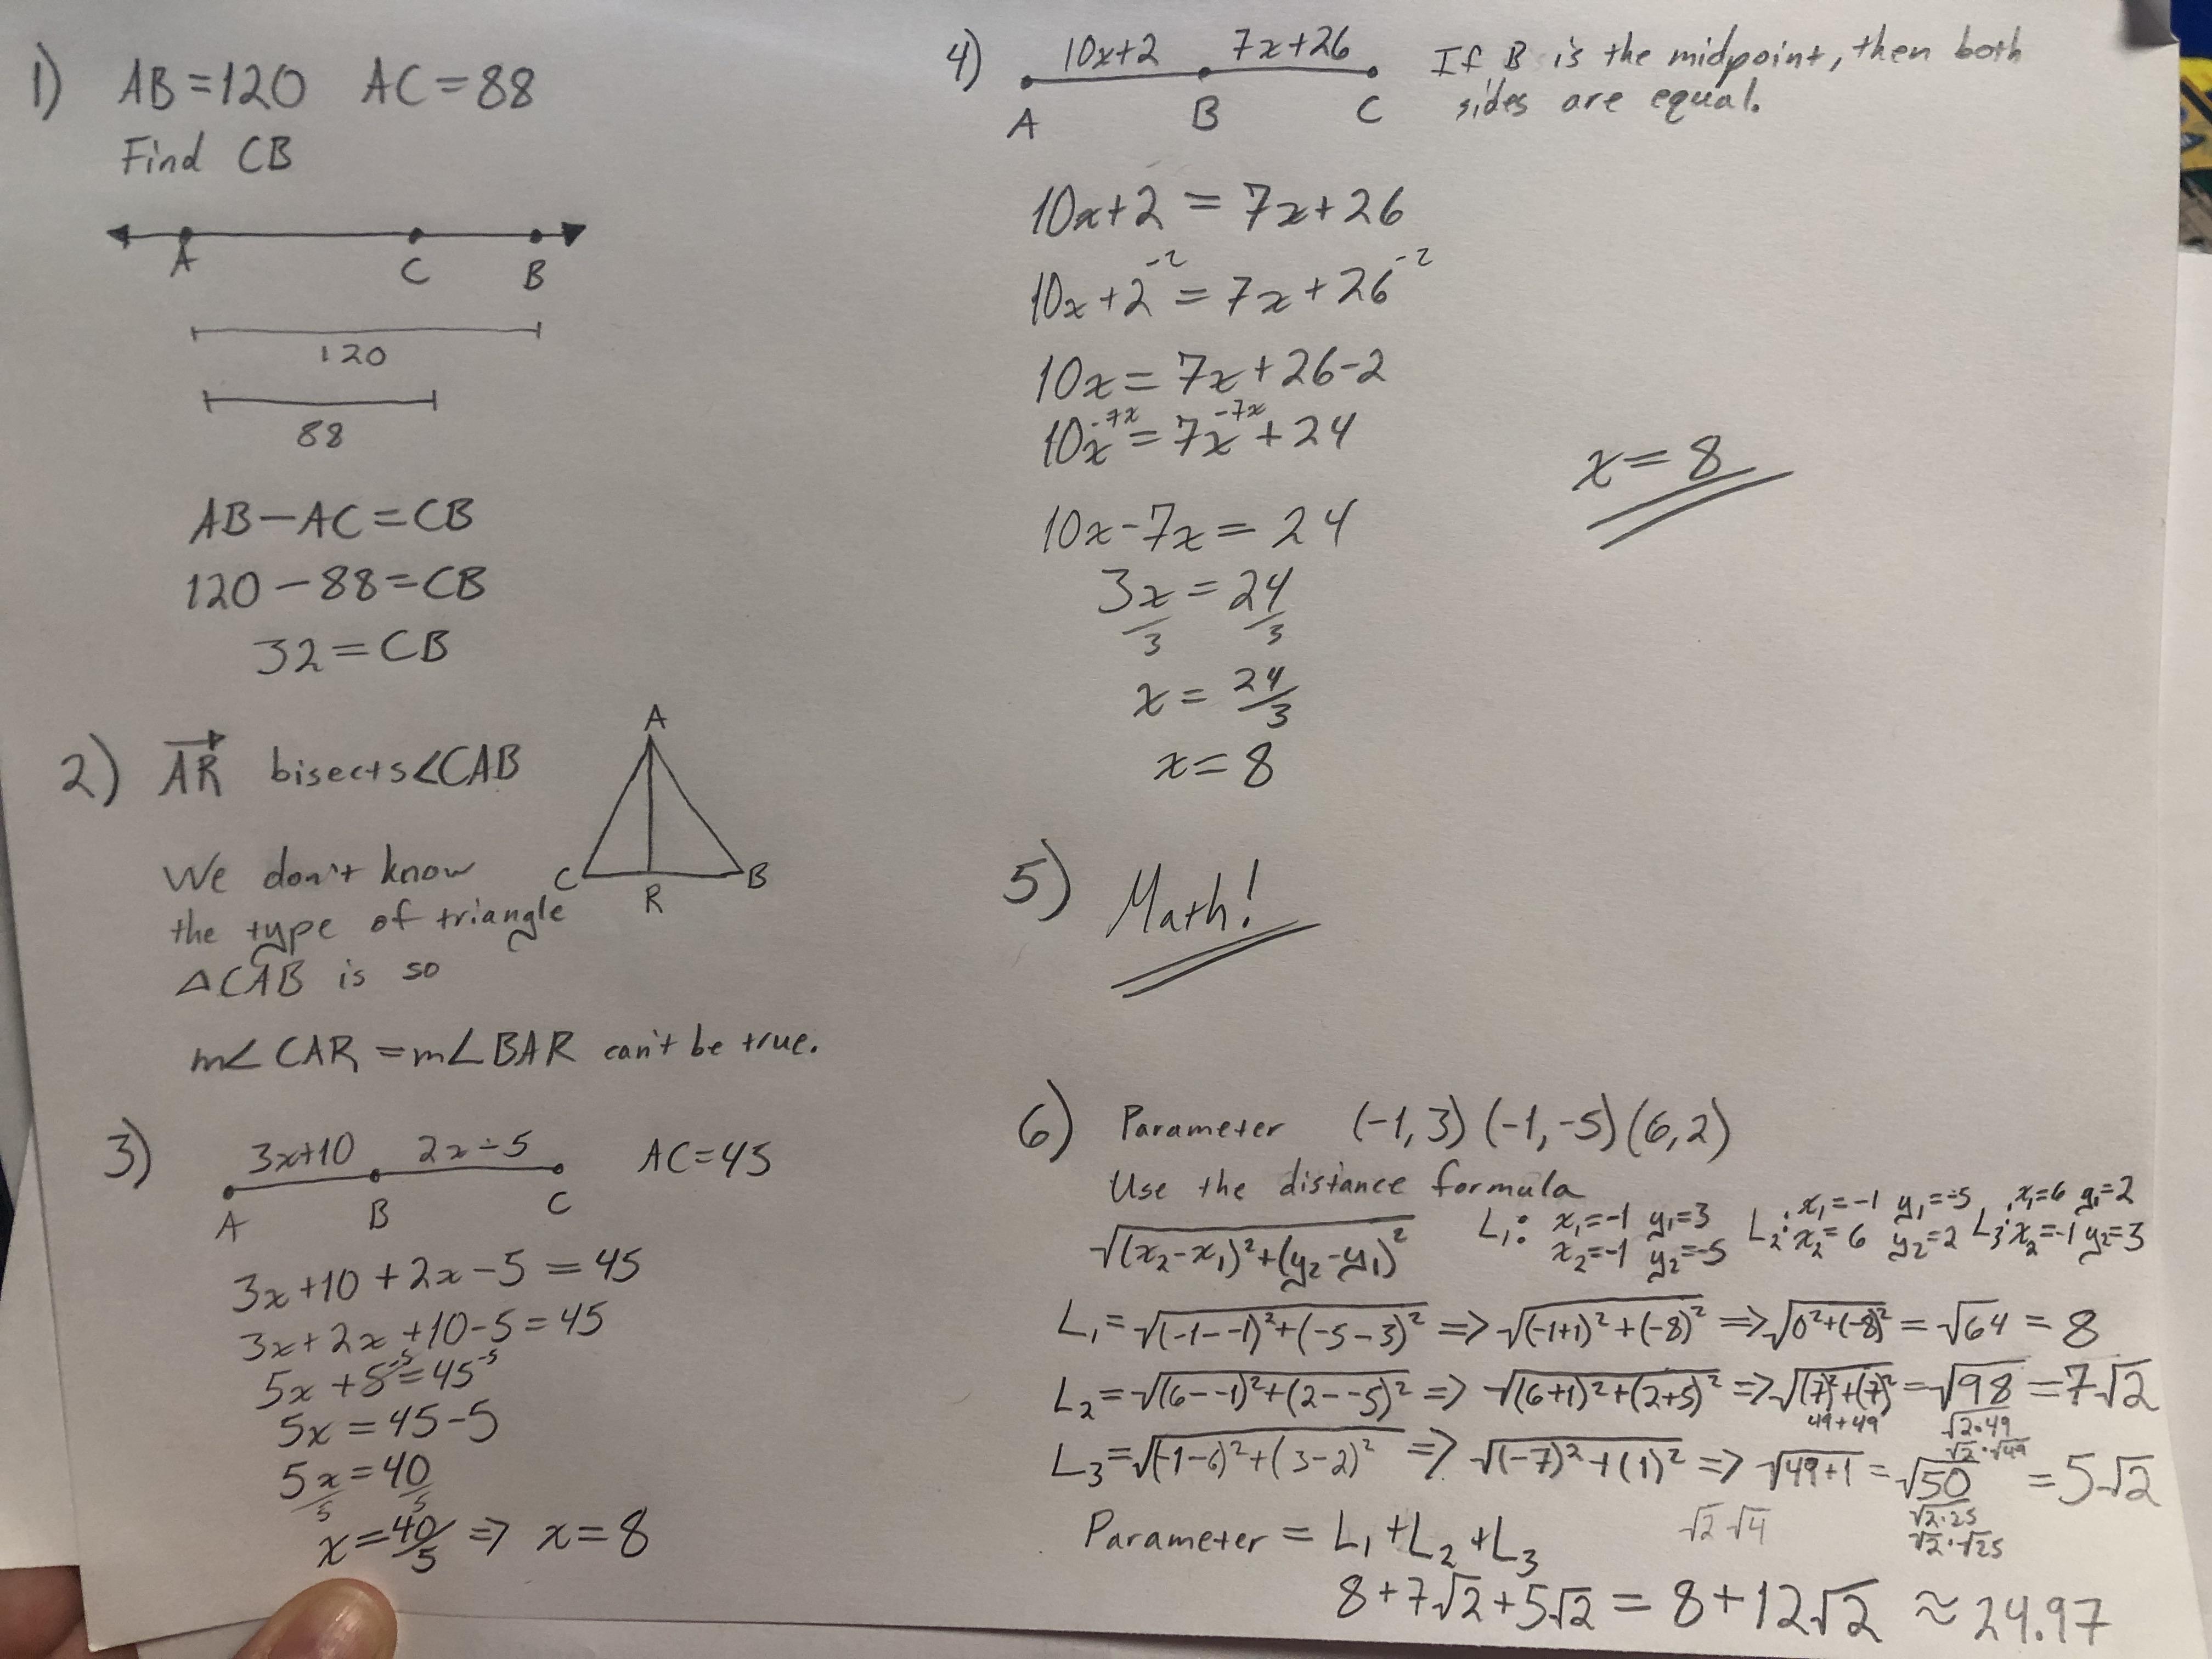 1) AB=120 AC=88
Find CB
A C B
120
88
AB-AC=CB
120-88=CB
32=CB
2) AR bisects∠CAB
A
C R B
We don't know
the type of triangle
△CAB is so
m∠CAR=m∠BAR can't be true.
3) 3x+10 2x-5 AC=45
A B C
3x+10+2x-5=45
3x+2x+10-5=45
5x+5⁻⁵=45⁻⁵
5x=45-5
5x/5=40/5
x=40/5 => x=8
4) 10x+2 7x+26 If B is the midpoint, then both
A B C sides are equal.
10x+2=7x+26
10x+2⁻²=7x+26⁻²
10x=7x+26-2
10x⁻⁷ˣ=7x⁻⁷ˣ+24
10x-7x=24
3x/3=24/3
x=24/3
x=8
x=8
5) Math!
6) Parameter (-1,3)(-1,-5)(6,2)
Use the distance formula
√(x₂-x₁)²+(y₂-y₁)² L₁: x₁=-1 y₁=3 L₂: x₁=-1 y₁=-5 L₃: x₁=6 y₁=2
x₂=-1 y₂=-5 x₂=6 y₂=2 x₂=-1 y₂=3
L₁=√(-1--1)²+(-5-3)² => √(-1+1)²+(-8)² => √0²+(-8)² = √64 = 8
L₂=√(6--1)²+(2--5)² => √(6+1)²+(2+5)² => √(7)²+(7)² = √98 = 7√2
49+49 √2·49
√2·√49
L₃=√(-1-6)²+(3-2)² => √(-7)²+(1)² => √49+1 = √50 = 5√2
√2·25
√2·√25
√2 √4
Parameter = L₁+L₂+L₃
8+7√2+5√2 = 8+12√2 ≈ 24.97